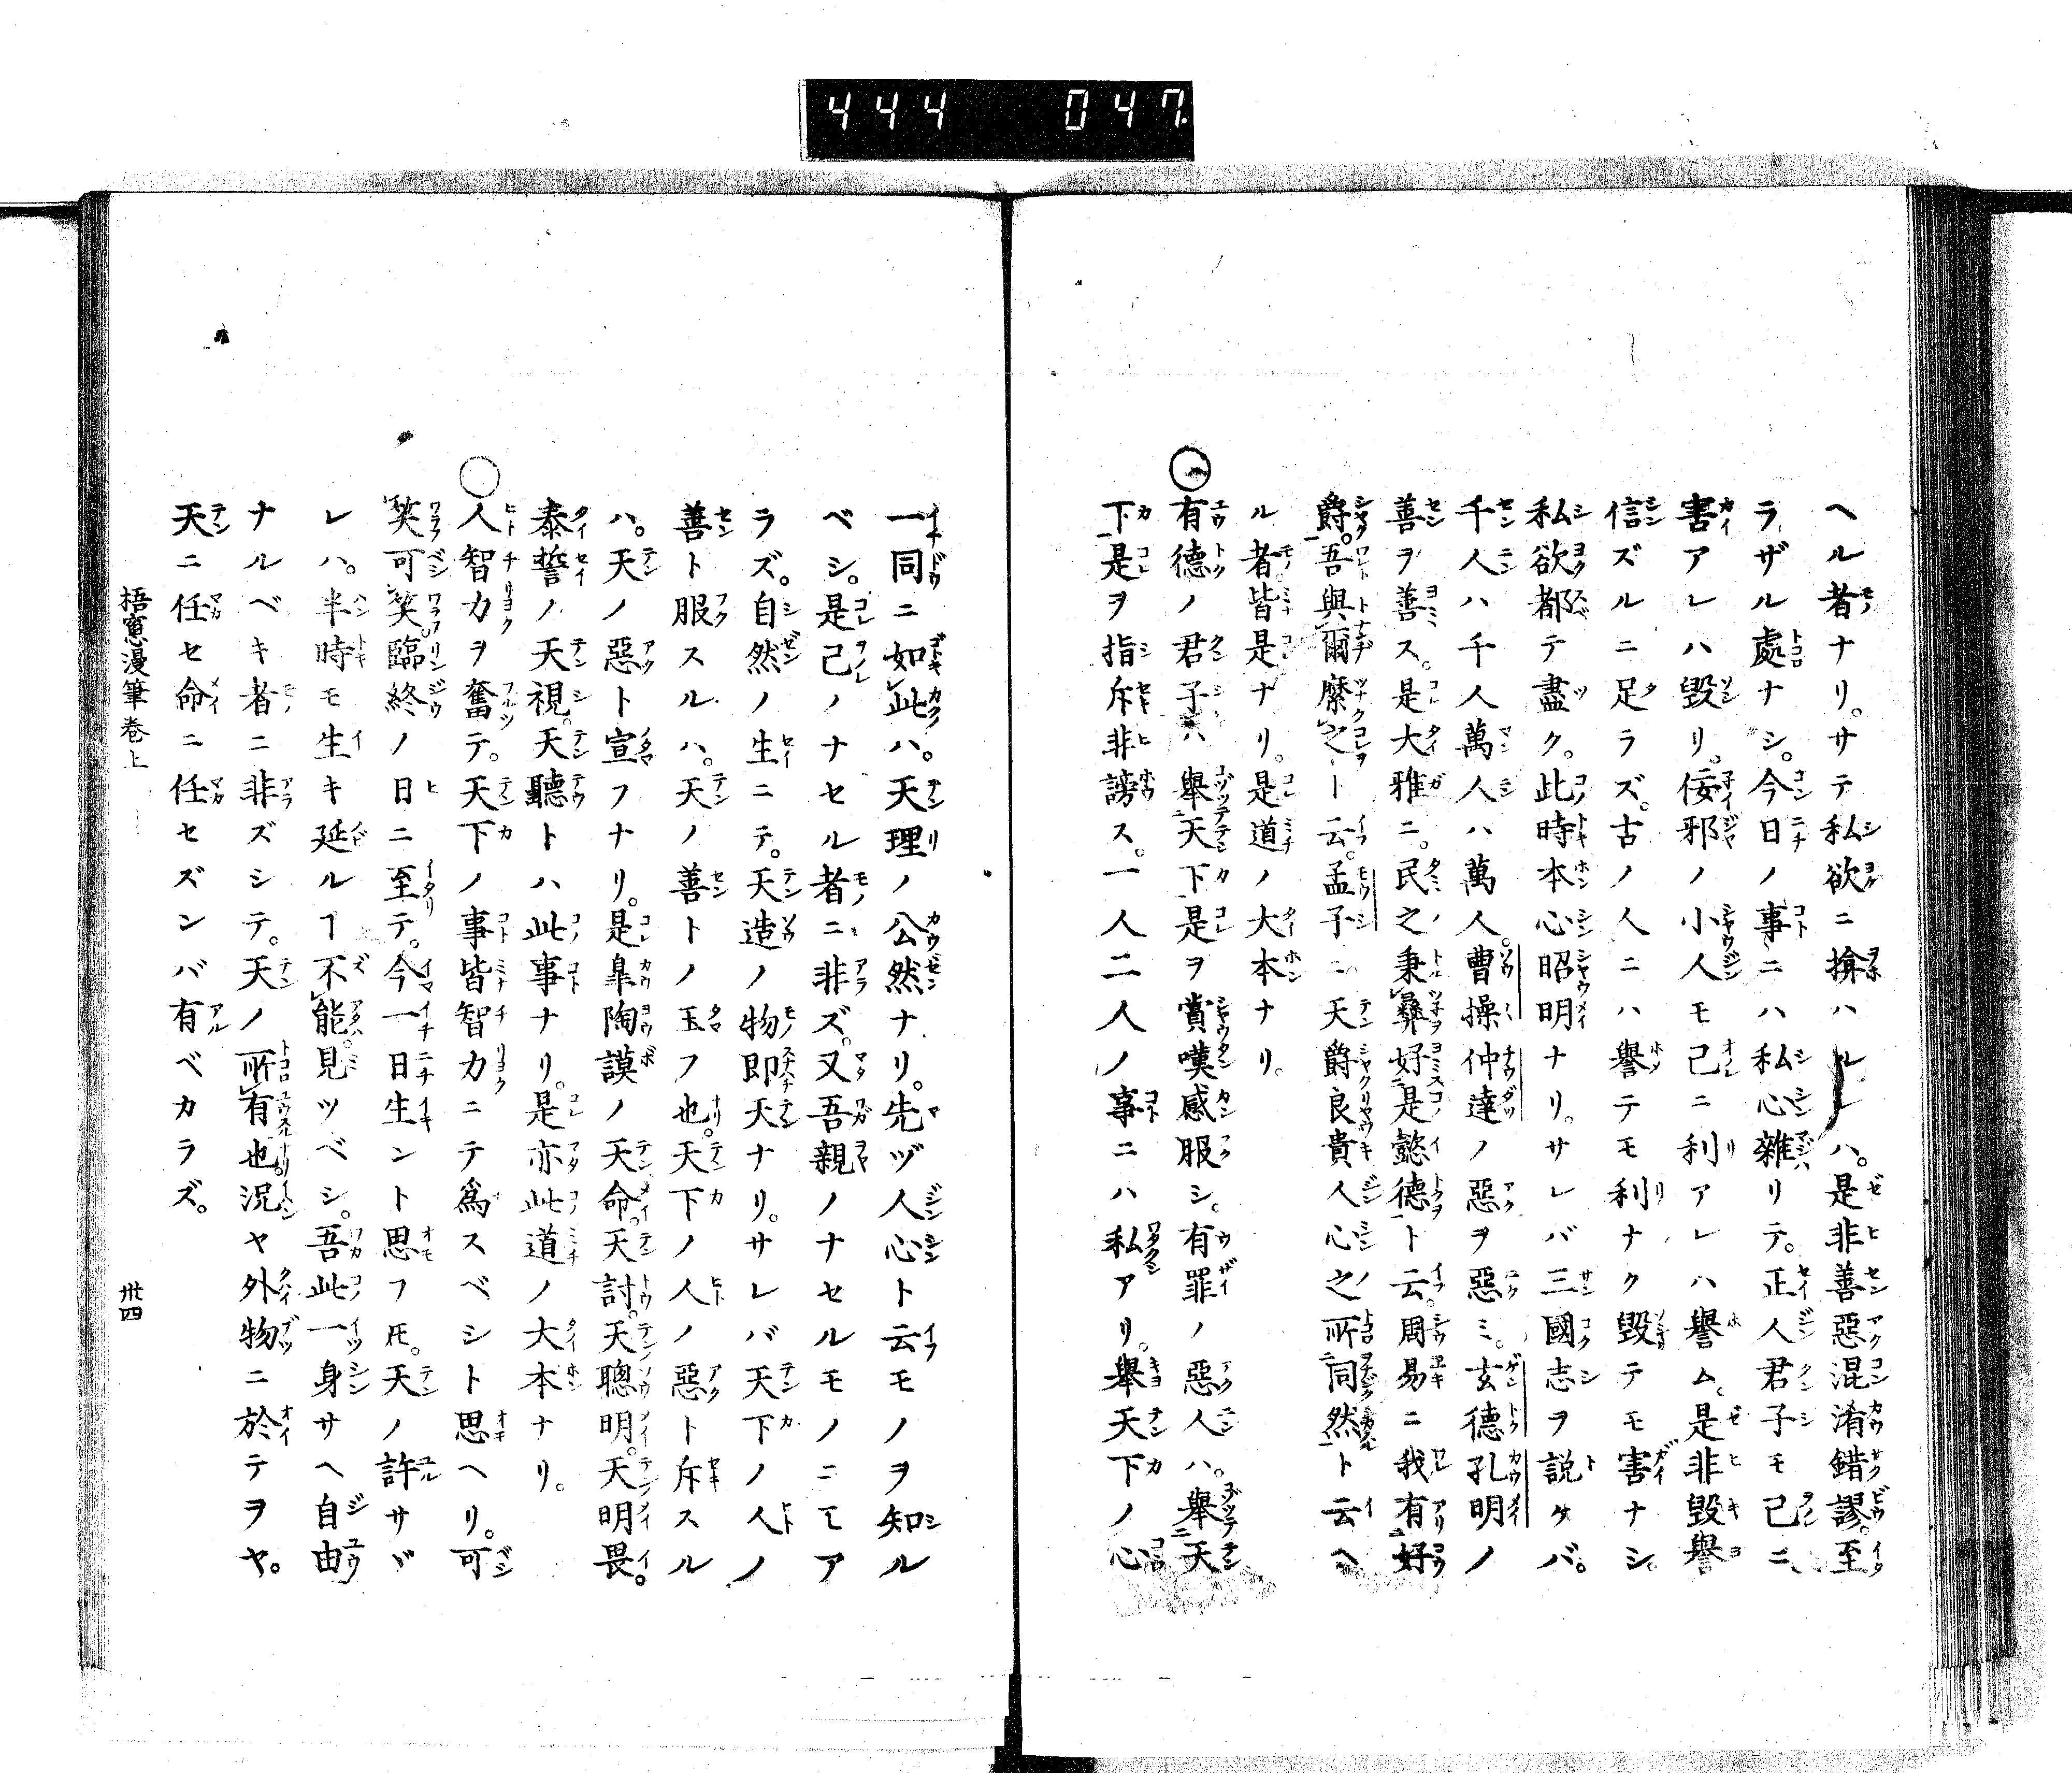 444 047
ヘル者ナリ。サテ私欲ニ揜ハルレハ。是非善惡混淆錯謬。至
ラザル處ナシ。今日ノ事ニハ私心雜リテ。正人君子モ己ニ
害アレハ毀リ。佞邪ノ小人モ己ニ利アレハ譽ム。是非毀譽
信ズルニ足ラズ。古ノ人ニハ譽テモ利ナク毀テモ害ナシ。
私欲都テ盡ク。此時本心昭明ナリ。サレバ三國志ヲ説ケバ。
千人ハ千人萬人ハ萬人。曹操仲達ノ惡ヲ惡ミ。玄德孔明ノ
善ヲ善ス。是大雅ニ。民之秉彝好是懿德ト云。周易ニ我有好
爵。吾與爾縻之ト云。孟子ニ天爵良貴人心之所同然ト云ヘ
ル者。皆是ナリ。是道ノ大本ナリ。
○有德ノ君子ハ擧天下是ヲ賞嘆感服シ。有罪ノ惡人ハ。擧天
下是ヲ指斥非謗ス。一人二人ノ事ニハ私アリ。擧天下ノ心
一同ニ如此ハ。天理ノ公然ナリ。先ヅ人心ト云モノヲ知ル
ベシ。是己ノナセル者ニ非ズ。又吾親ノナセルモノニモア
ラズ。自然ノ生ニテ。天造ノ物即天ナリ。サレバ天下ノ人ノ
善ト服スルハ。天ノ善トノ玉フ也。天下ノ人ノ惡ト斥スル
ハ。天ノ惡ト宣フナリ。是皐陶謨ノ天命。天討。天聰明。天明畏。
泰誓ノ天視。天聽トハ此事ナリ。是亦此道ノ大本ナリ。
○人智力ヲ奮テ。天下ノ事皆智力ニテ爲スベシト思ヘリ。可
笑可笑。臨終ノ日ニ至テ。今一日生ント思フ𪜈。天ノ許サヾ
レハ。半時モ生キ延ルヿ不能。見ツベシ。吾此一身サヘ自由
ナルベキ者ニ非ズシテ。天ノ所有也。況ヤ外物ニ於テヲヤ。
天ニ任セ命ニ任セズンバ有ベカラズ。
梧窻漫筆卷上 卅四